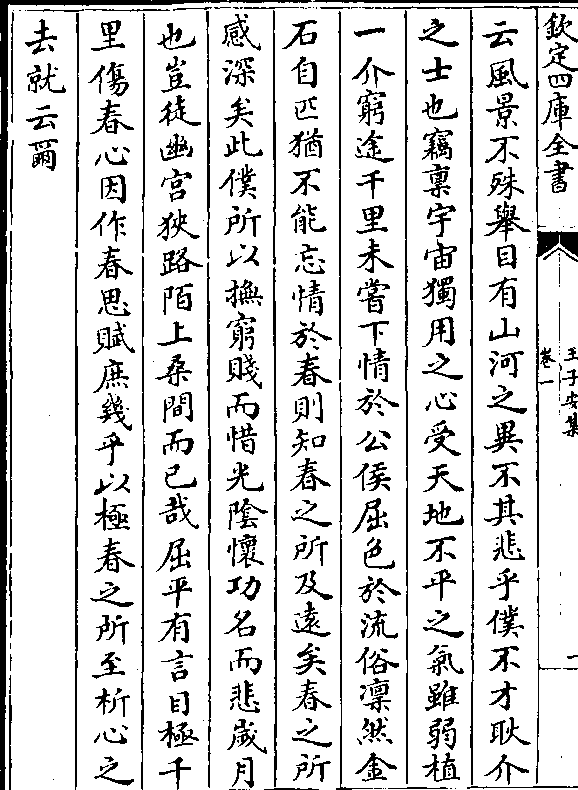 欽定四庫全書
王子安集
卷一
一
云風景不殊舉目有山河之異不其悲乎僕不才耿介
之士也竊禀宇宙獨用之心受天地不平之氣雖弱植
一介窮途千里未嘗下情於公侯屈色於流俗凛然金
石自匹猶不能忘情於春則知春之所及遠矣春之所
感深矣此僕所以撫窮賤而惜光陰懷功名而悲嵗月
也豈徒幽宫狹路陌上桑間而已哉屈平有言目極千
里傷春心因作春思賦庶幾乎以極春之所至析心之
去就云爾